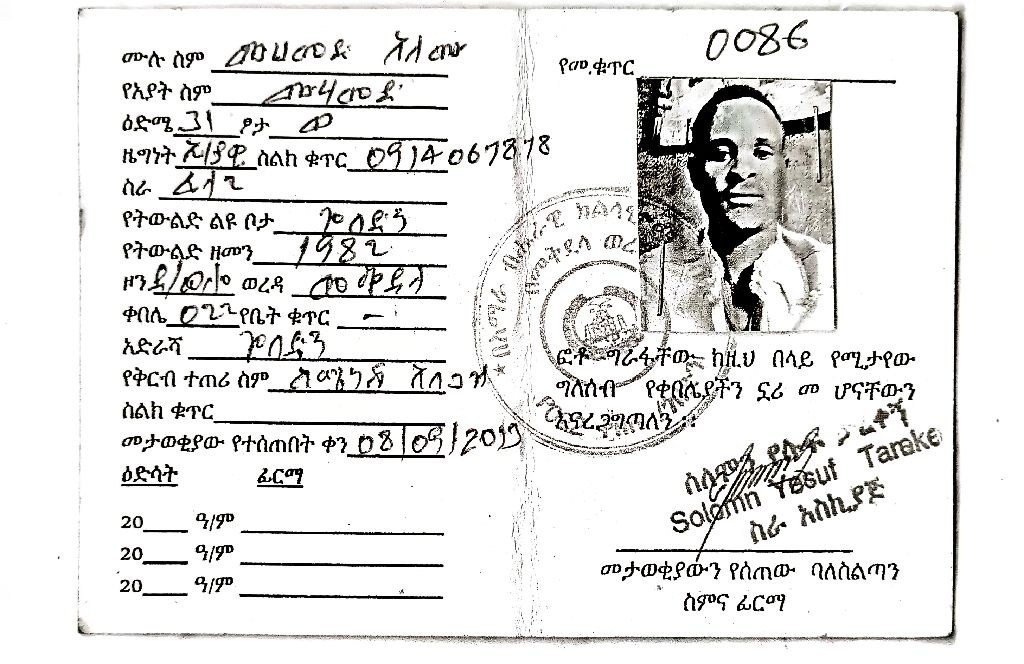 ሙሉ ስም መሀመድ አለሙ
የአያት ስም መሃመድ
ዕድሜ 31 ፆታ ወ
ዜግነት ኢ/ያዊ ስልክ ቁጥር 0914067878
ስራ
የትውልድ ልዩ ቦታ
የትውልድ ዘመን 1982
ዞን ደ/ወ/ሎ ወረዳ መቅደላ
ቀበሌ 022 የቤት ቁጥር -
አድራሻ
የቅርብ ተጠሪ ስም
ስልክ ቁጥር
መታወቂያው የተሰጠበት ቀን 08/09/2013
ዕድሳት ፊርማ
20 ዓ/ም
20 ዓ/ም
20 ዓ/ም
0086
የመ.ቁጥር
በአማራ ብሔራዊ ክልላዊ
በመቅደላ ወረዳ
ፎቶ ግራፋቸው ከዚህ በላይ የሚታየው
ግለሰብ የቀበሌያችን ኗሪ መ ሆናቸውን
እናረጋግጣለን ።
ሰለሞን የሱፍ
Solomn Yesuf Tareke
ስራ አስኪያጅ
መታወቂያውን የሰጠው ባለስልጣን
ስምና ፊርማ